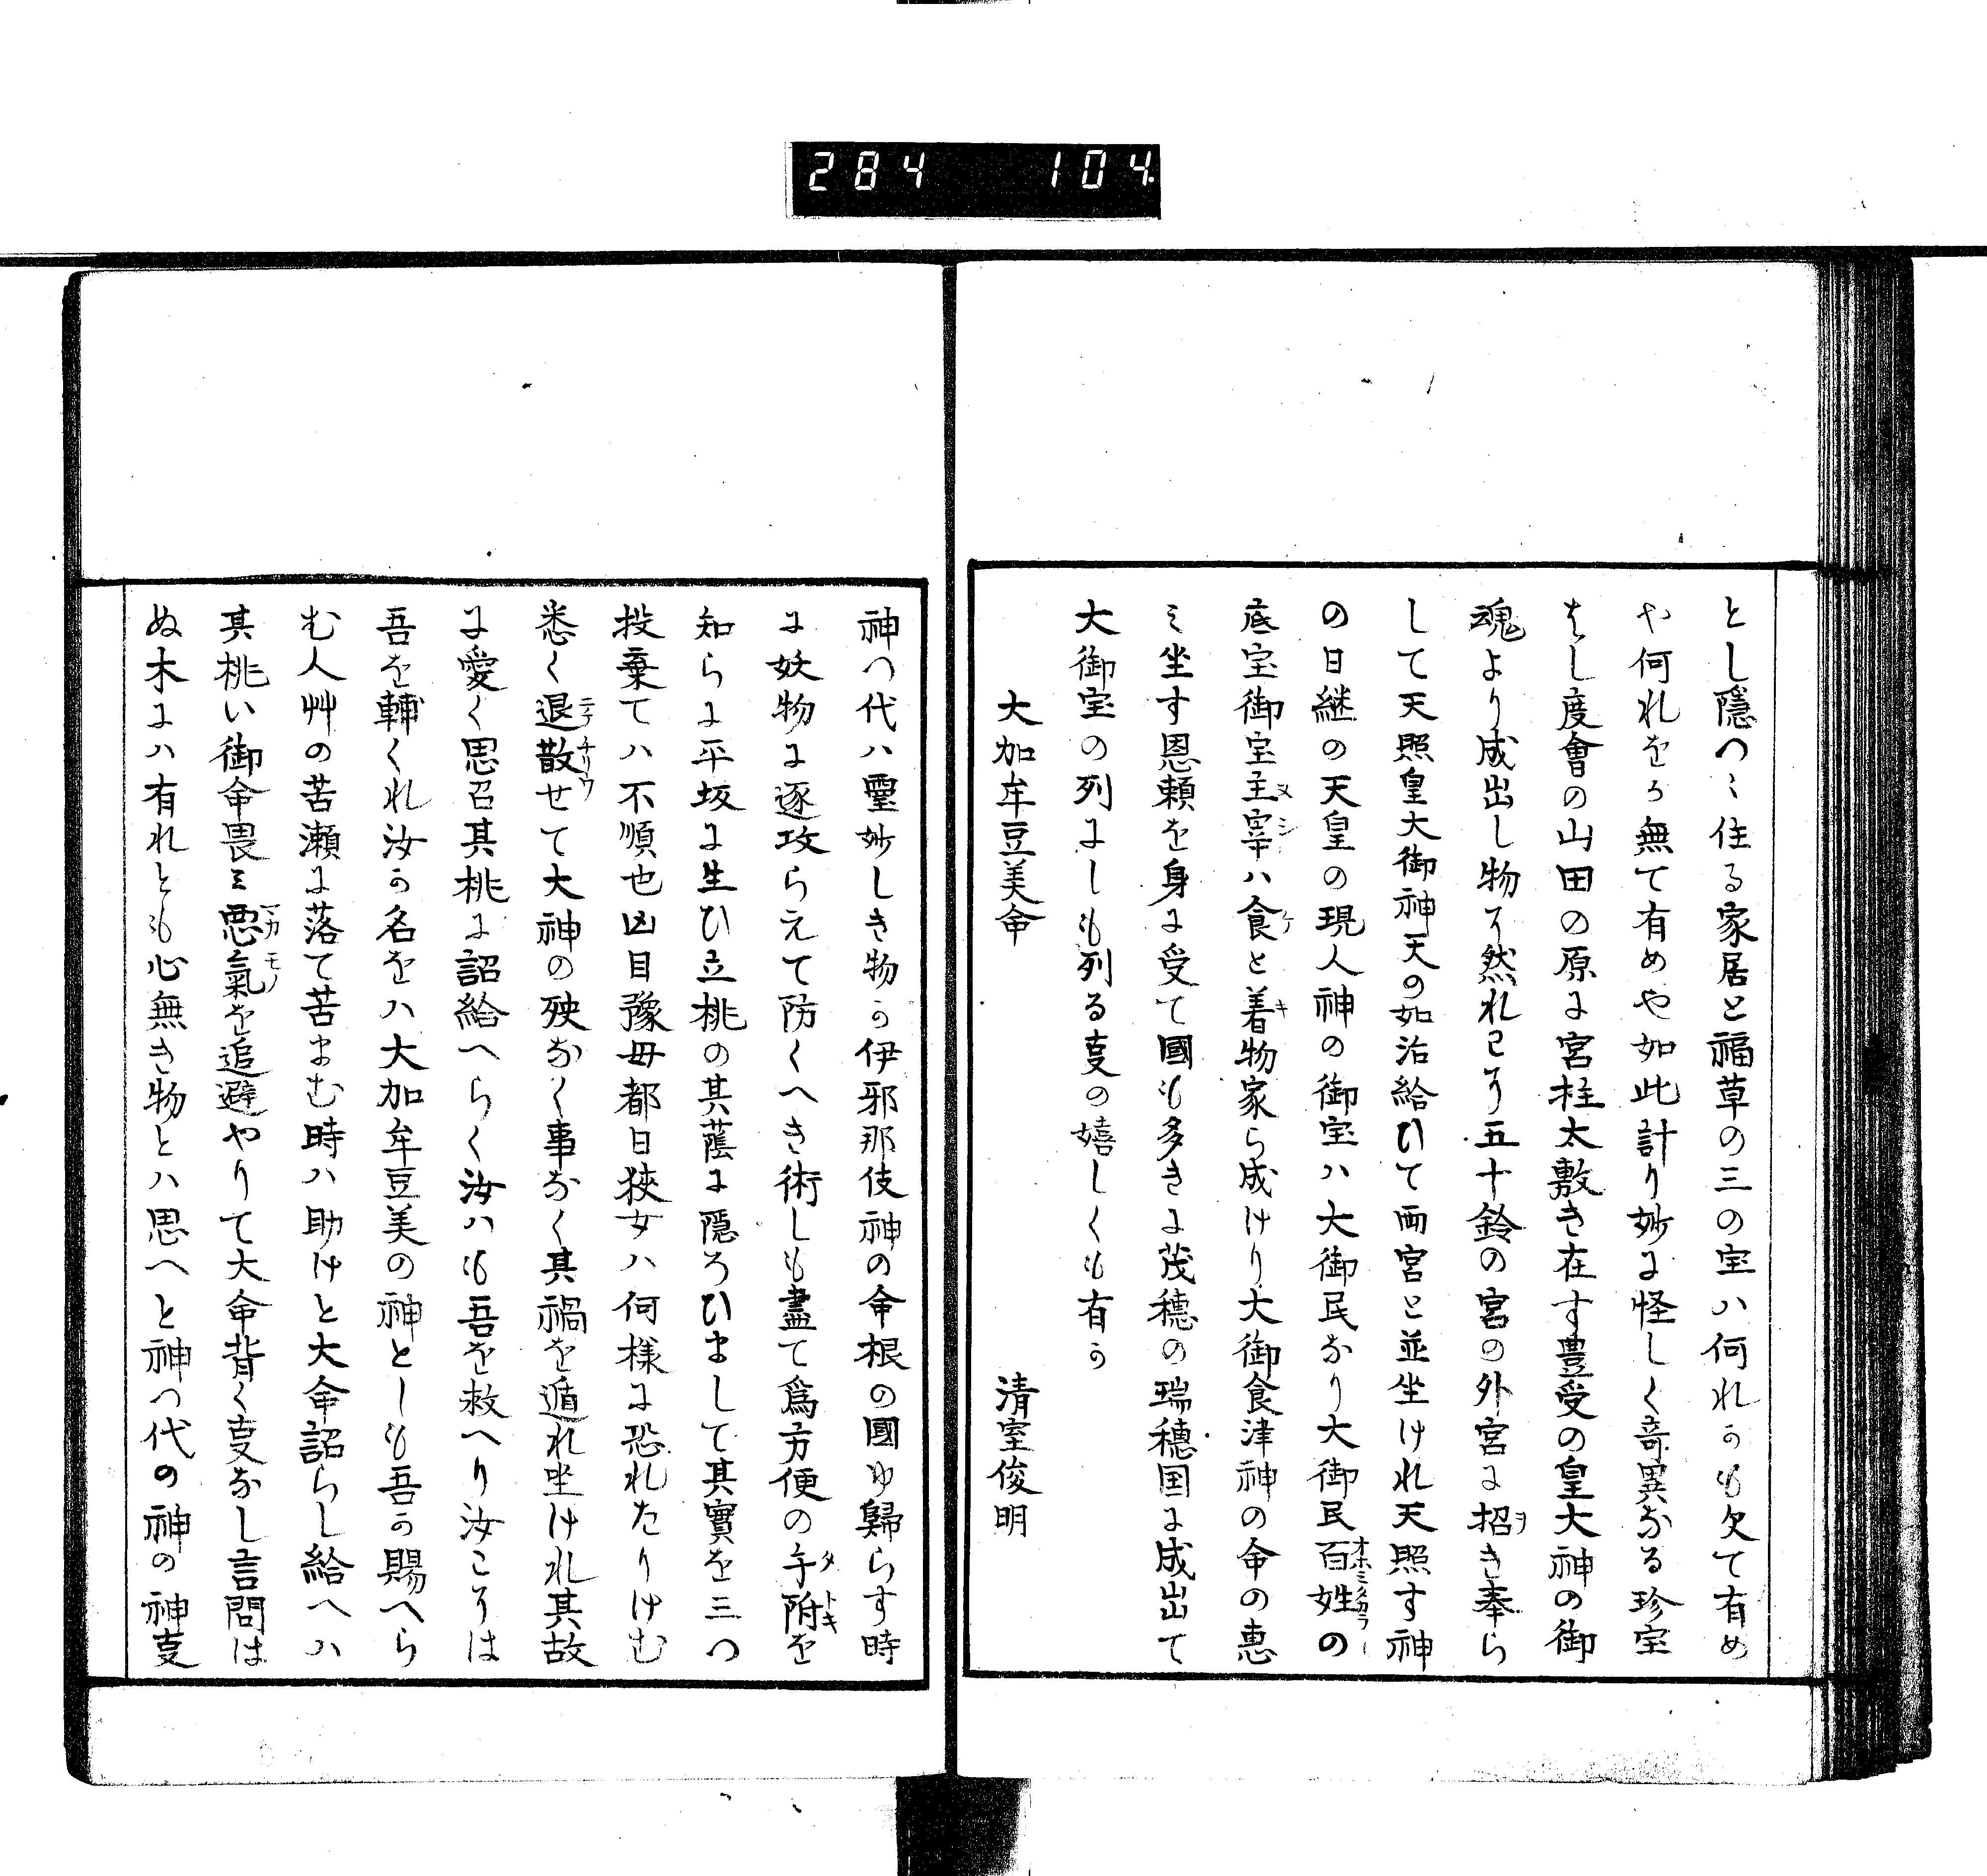 284 104
とし隠つゝ住る家居と福草の三の宝ハ何れかも欠て有め
や何れをか無て有めや如此計り妙に怪しく竒異なる珍宝
はし度會の山田の原に宮柱太敷き在す豊受の皇大神の御
魂より成出し物そ然れこそ五十鈴の宮の外宮に招き奉ら
して天照皇大御神天の如治給ひて両宮と並坐けれ天照す神
の日継の天皇の現人神の御宝ハ大御民なり大御民百姓の
底宝御宝主宰ハ食と着物家ら成けり大御食津神の命の恵
ミ坐す恩頼を身に受て國も多きに茂穂の瑞穂国に成出て
大御宝の列にしも列る叓の嬉しくも有か
大加牟豆美命　清室俊明
神つ代ハ靈妙しき物か伊邪那伎神の命根の國ゆ歸らす時
に妖物に逐攻らえて防くへき術しも盡て爲方便の手附を
知らに平坂に生ひ立桃の其蔭に隠ろひまして其實を三つ
投棄てハ不順也凶目豫母都日狹女ハ何樣に恐れたりけむ
悉く退散せて大神の殃なく事なく其禍を遁れ坐けれ其故
に愛く思召其桃に詔給へらく汝ハも吾を救へり汝こそは
吾を輔くれ汝か名をハ大加牟豆美の神としも吾か賜へら
む人艸の苦瀬に落て苦まむ時ハ助けと大命詔らし給へハ
其桃い御命畏ミ悪氣を追避やりて大命背く叓なし言問は
ぬ木にハ有れとも心無き物とハ思へと神つ代の神の神叓